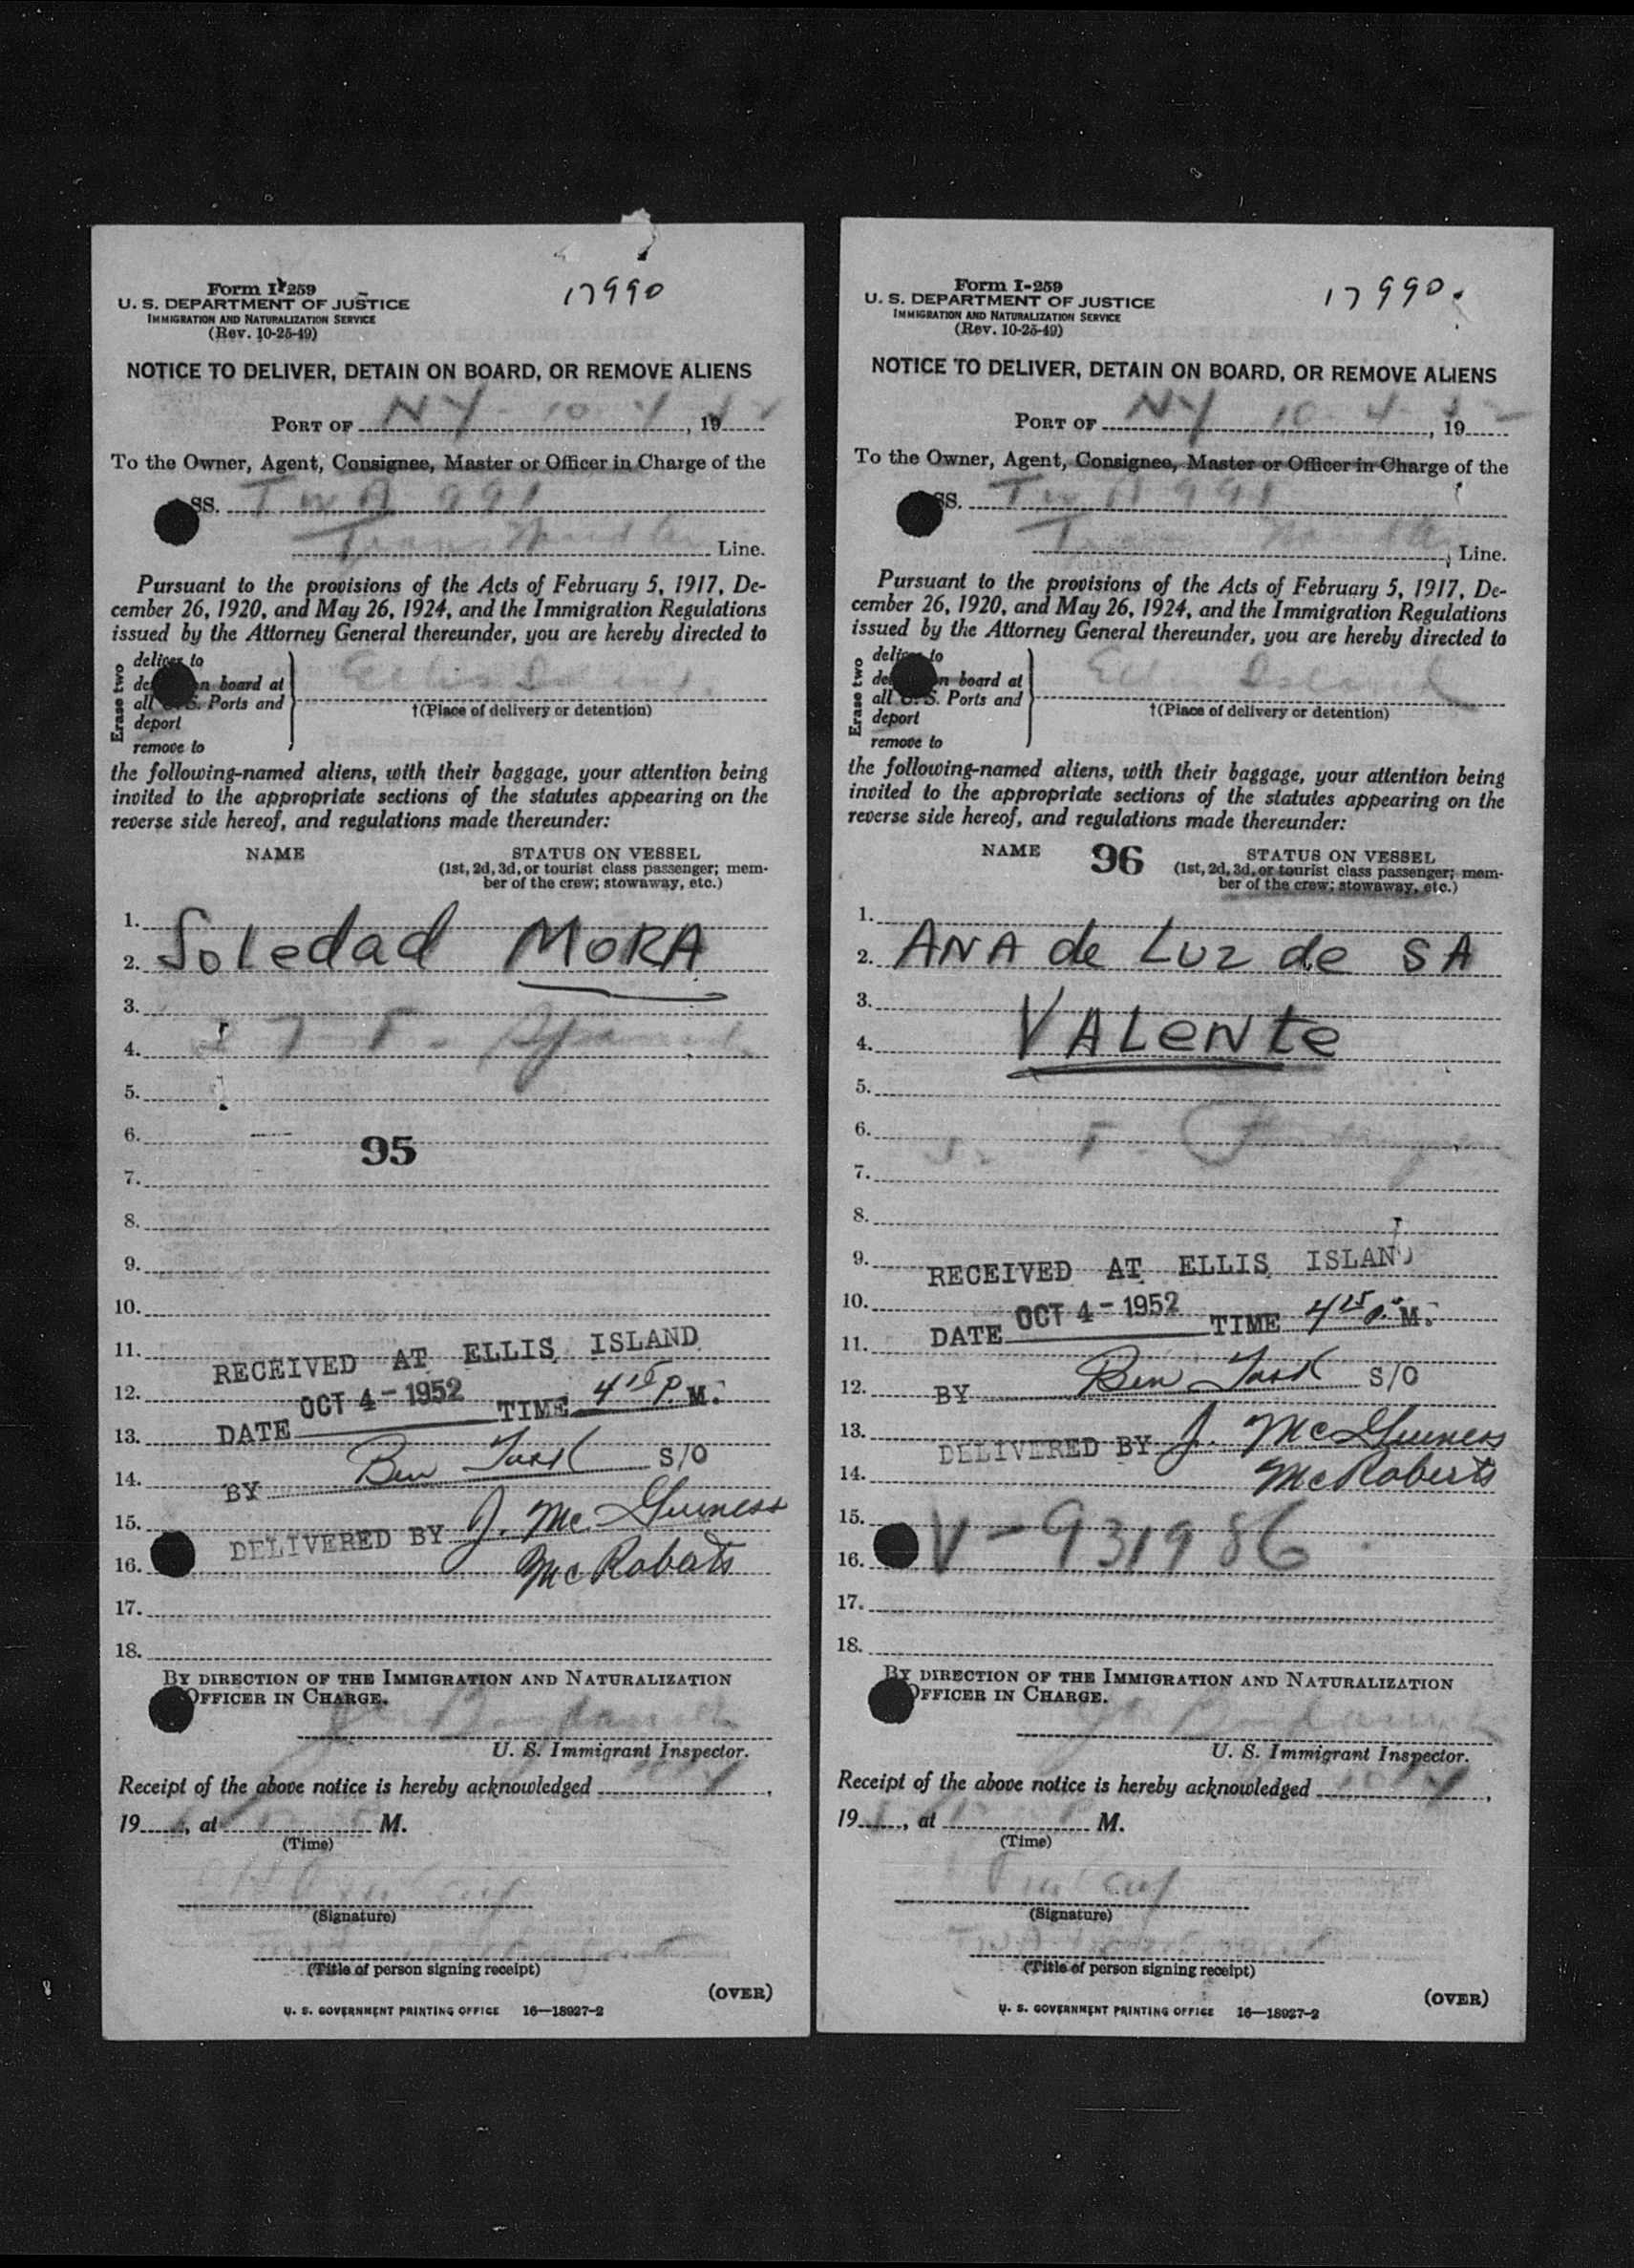 Form I-259
U. S. DEPARTMENT OF JUSTICE
IMMIGRATION AND NATURALIZATION SERVICE
(Rev. 10-25-49)
17990
NOTICE TO DELIVER, DETAIN ON BOARD, OR REMOVE ALIENS
PORT OF NY 10-4, 1952
To the Owner, Agent, Consignee, Master or Officer in Charge of the
SS. TWA 991
Trans Line.
Pursuant to the provisions of the Acts of February 5, 1917, De-
cember 26, 1920, and May 26, 1924, and the Immigration Regulations
issued by the Attorney General thereunder, you are hereby directed to
Erase two
deliver to
on board at
all U.S. Ports and
deport
remove to
Ellis Island
†(Place of delivery or detention)
the following-named aliens, with their baggage, your attention being
invited to the appropriate sections of the statutes appearing on the
reverse side hereof, and regulations made thereunder:
NAME STATUS ON VESSEL
(1st, 2d, 3d, or tourist class passenger; mem-
ber of the crew; stowaway, etc.)
1.
2. Soledad MORA
3.
4. F - Spanish
5.
6.
95
7.
8.
9.
10.
11. RECEIVED AT ELLIS ISLAND
12. OCT 4 - 1952
DATE TIME 4 15 P. M.
13.
14. BY Ben S/O
15. DELIVERED BY J. McGuiness
16. McRoberts
17.
18.
BY DIRECTION OF THE IMMIGRATION AND NATURALIZATION
OFFICER IN CHARGE.
U. S. Immigrant Inspector.
Receipt of the above notice is hereby acknowledged 10/4,
19, at M.
(Time)
(Signature)
(Title of person signing receipt)
(OVER)
U. S. GOVERNMENT PRINTING OFFICE 16—18927-2
Form I-259
U. S. DEPARTMENT OF JUSTICE
IMMIGRATION AND NATURALIZATION SERVICE
(Rev. 10-25-49)
17990.
NOTICE TO DELIVER, DETAIN ON BOARD, OR REMOVE ALIENS
PORT OF NY 10-4-, 1952
To the Owner, Agent, Consignee, Master or Officer in Charge of the
SS. TWA 991
Line.
Pursuant to the provisions of the Acts of February 5, 1917, De-
cember 26, 1920, and May 26, 1924, and the Immigration Regulations
issued by the Attorney General thereunder, you are hereby directed to
Erase two
deliver to
on board at
all U.S. Ports and
deport
remove to
Ellis Island
†(Place of delivery or detention)
the following-named aliens, with their baggage, your attention being
invited to the appropriate sections of the statutes appearing on the
reverse side hereof, and regulations made thereunder:
NAME 96 STATUS ON VESSEL
(1st, 2d, 3d, or tourist class passenger; mem-
ber of the crew; stowaway, etc.)
1.
2. ANA de Luz de SA
3.
4. VALeNte
5.
6. F
7.
8.
9. RECEIVED AT ELLIS ISLAND
10. OCT 4 - 1952
11. DATE TIME 4 15 P. M.
12. BY Ben S/O
13. DELIVERED BY J. McGuiness
14. McRoberts
15.
16. V-931986
17.
18.
BY DIRECTION OF THE IMMIGRATION AND NATURALIZATION
OFFICER IN CHARGE.
U. S. Immigrant Inspector.
Receipt of the above notice is hereby acknowledged 10/4,
19, at M.
(Time)
(Signature)
TWA
(Title of person signing receipt)
(OVER)
U. S. GOVERNMENT PRINTING OFFICE 16—18927-2